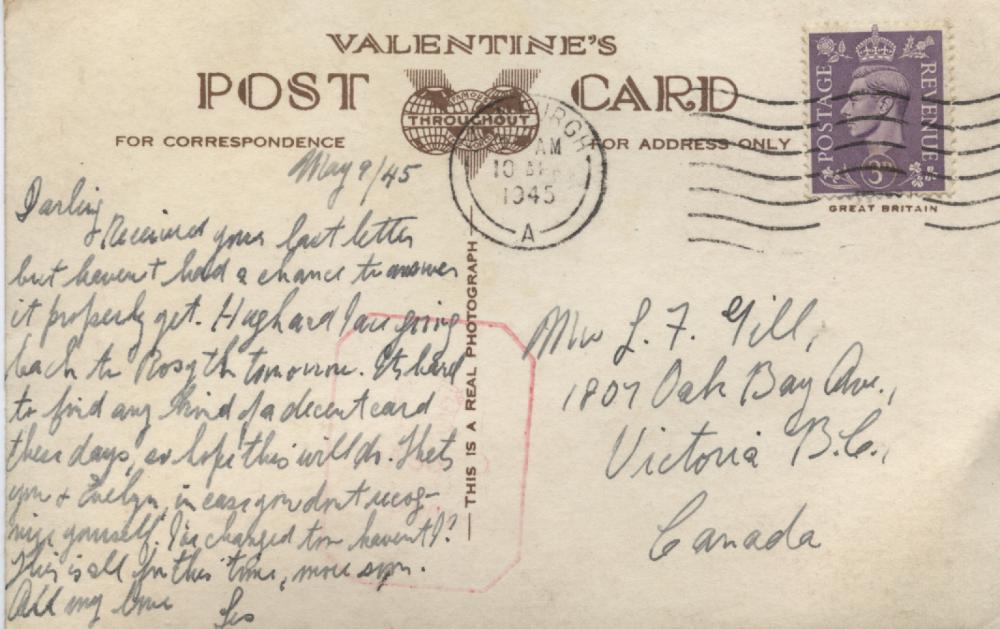 VALENTINE'S
POST CARD
FAMOUS
THROUGHOUT
FOR CORRESPONDENCE
FOR ADDRESS ONLY
POSTAGE REVENUE
3D
GREAT BRITAIN
AM
10
1945
A
THIS IS A REAL PHOTOGRAPH
May 9/45
Darling
Received your last letter
but haven't had a chance to answer
it properly yet. Hugh and I are going
back to Rosyth tomorrow. It's hard
to find any kind of a decent card
these days, so hope this will do. That's
you & Evelyn, in case you don't recog-
nize yourself. I've changed too haven't I?
This is all for this time, more soon.
All my love
Les
Mrs L. F. Gill,
1807 Oak Bay Ave.,
Victoria B.C.,
Canada